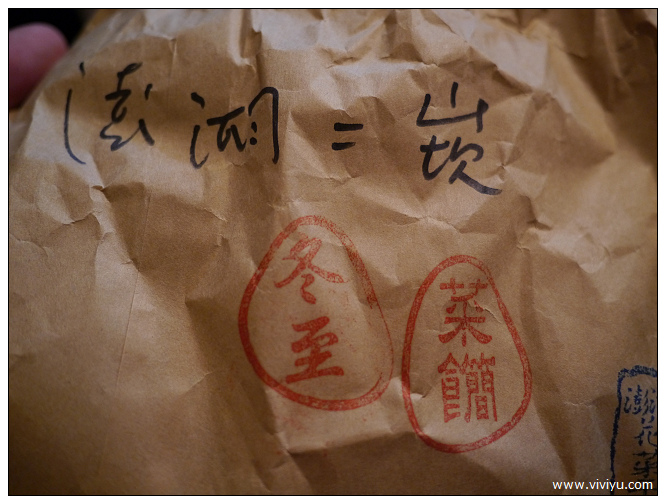 澎湖二崁
冬至
菜
澎
花
菜
www.viviyu.com